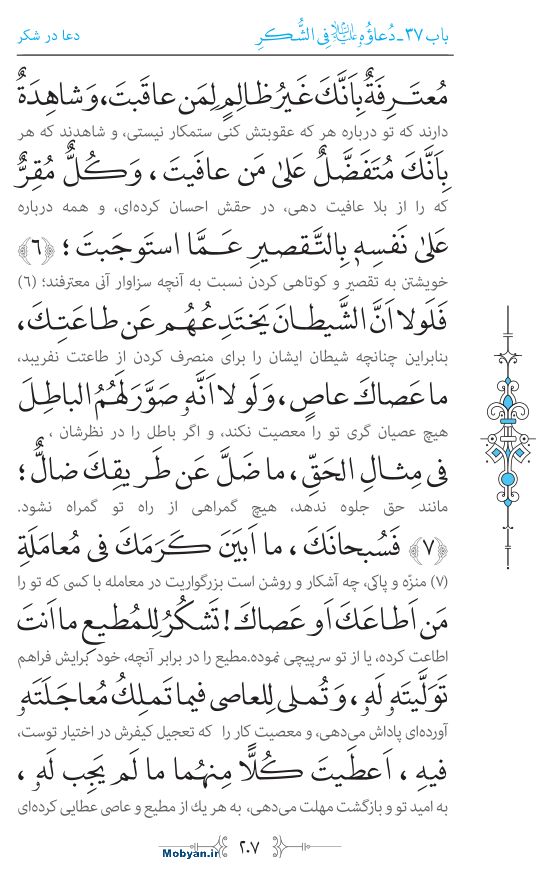 باب ۳۷ـ دُعاؤُه علیه‌السلام فِی الشُّکرِ
دعا در شکر
مُعتَرِفَةٌ بِاَنَّكَ غَيرُ ظالِمٍ لِمَن عاقَبتَ، وَ شاهِدَةٌ
دارند که تو درباره هر که عقوبتش کنی ستمکار نیستی، و شاهدند که هر
بِاَنَّكَ مُتَفَضِّلٌ عَلىٰ مَن عافَيتَ ، وَ كُلٌّ مُقِرٌّ
که را از بلا عافیت دهی، در حقش احسان کرده‌ای، و همه درباره
عَلىٰ نَفسِهٖ بِالتَّقصيرِ عَمَّا استَوجَبتَ ؛ ﴿۶﴾
خویشتن به تقصیر و کوتاهی کردن نسبت به آنچه سزاوار آنی معترفند؛ (۶)
فَلَولا اَنَّ الشَّيطانَ يَختَدِعُهُم عَن طاعَتِكَ،
بنابراین چنانچه شیطان ایشان را برای منصرف کردن از طاعتت نفریبد،
ما عَصاكَ عاصٍ ، وَ لَو لا اَنَّهٗ صَوَّرَ لَهُمُ الباطِلَ
هیچ عصیان گری تو را معصیت نکند، و اگر باطل را در نظرشان ،
فى مِثالِ الحَقِّ، ما ضَلَّ عَن طَريقِكَ ضالٌّ ؛
مانند حق جلوه ندهد، هیچ گمراهی از راه تو گمراه نشود.
﴿۷﴾ فَسُبحانَكَ ، ما اَبيَنَ كَرَمَكَ فى مُعامَلَةِ
(۷) منزّه و پاکی، چه آشکار و روشن است بزرگواریت در معامله با کسی که تو را
مَن اَطاعَكَ اَو عَصاكَ ! تَشكُرُ لِلمُطيعِ ما اَنتَ
اطاعت کرده، یا از تو سرپیچی نموده.مطیع را در برابر آنچه، خود برایش فراهم
تَوَلَّيتَهٗ لَهٗ ، وَ تُملى لِلعاصى فيما تَملِكُ مُعاجَلَتَهٗ
آورده‌ای پاداش می‌دهی، و معصیت کار را که تعجیل کیفرش در اختیار توست،
فيهِ ، اَعطَيتَ كُلًّا مِنهُما ما لَم يَجِب لَهٗ ،
به امید تو و بازگشت مهلت می‌دهی، به هر یك از مطیع و عاصی عطایی کرده‌ای
۲۰۷
Mobyan.ir